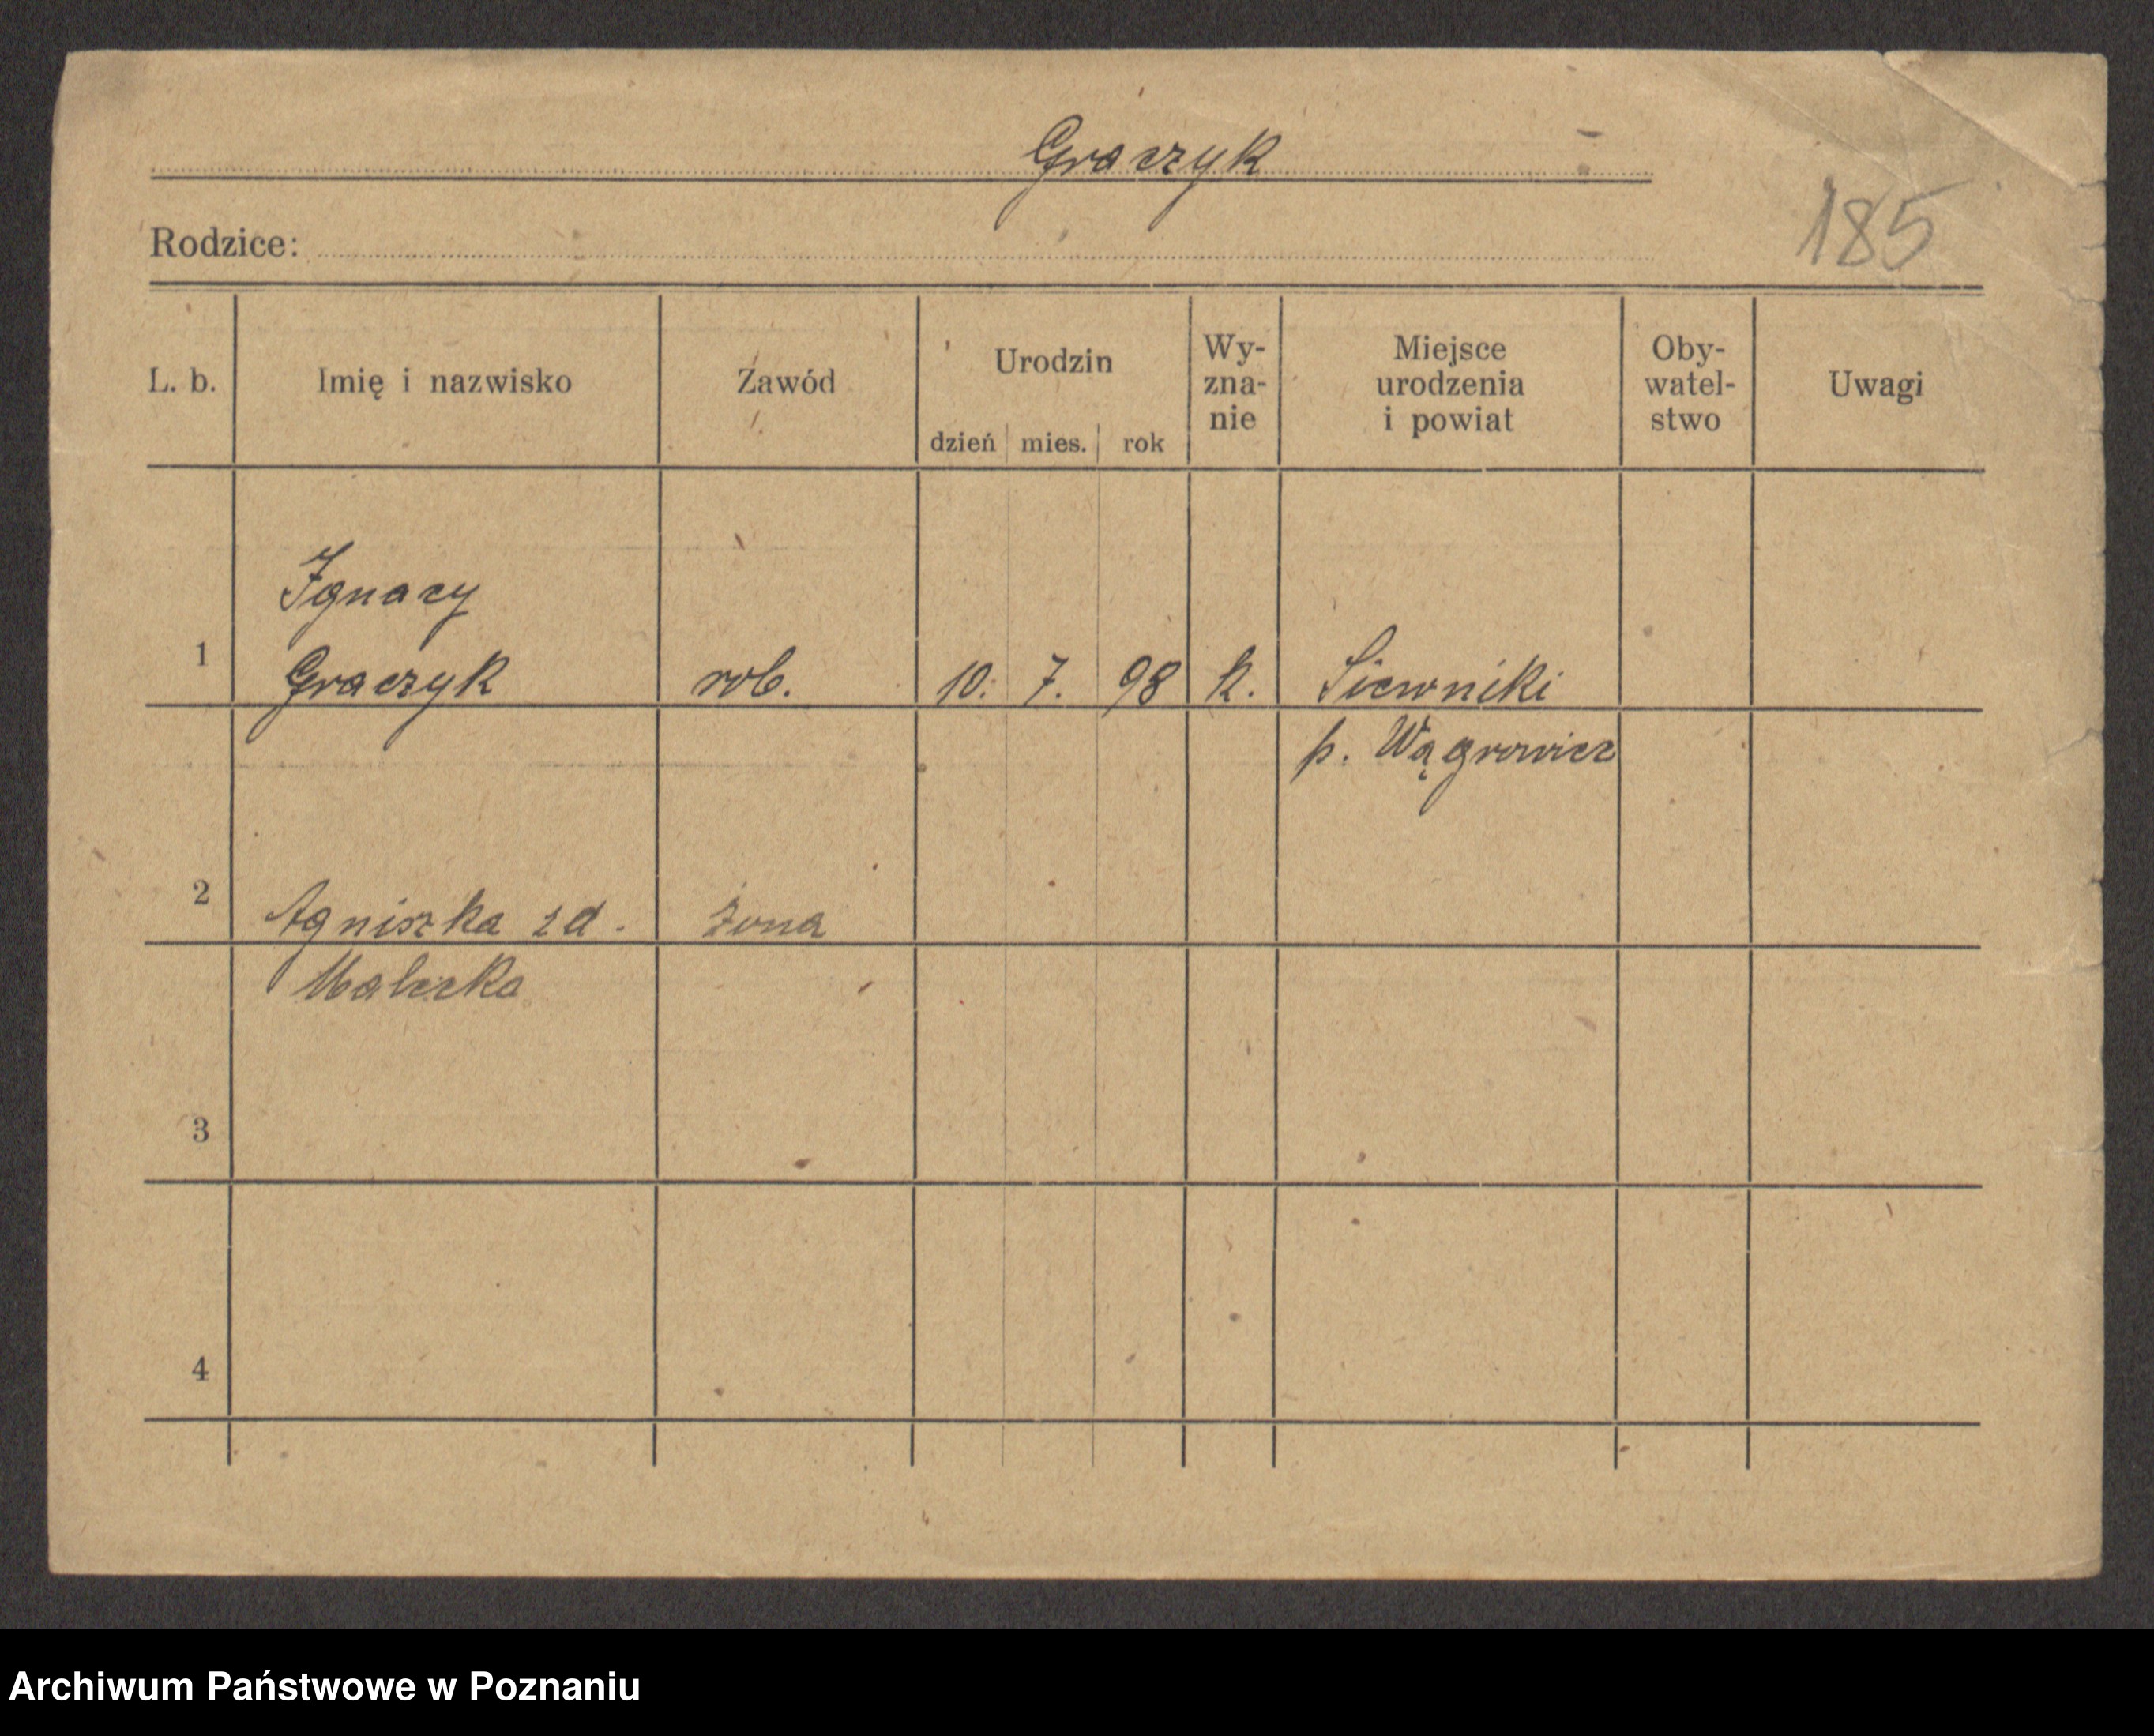 Graczyk
Rodzice:
185
L. b.
Imię i nazwisko
Zawód
Urodzin
dzień mies. rok
Wy-
zna-
nie
Miejsce
urodzenia
i powiat
Oby-
watel-
stwo
Uwagi
Ignacy
1 Graczyk rob. 10. 7. 98 k. Siewniki
p. Wągrowiec
2 Agniszka zd. żona
Malecka
3
4
Archiwum Państwowe w Poznaniu